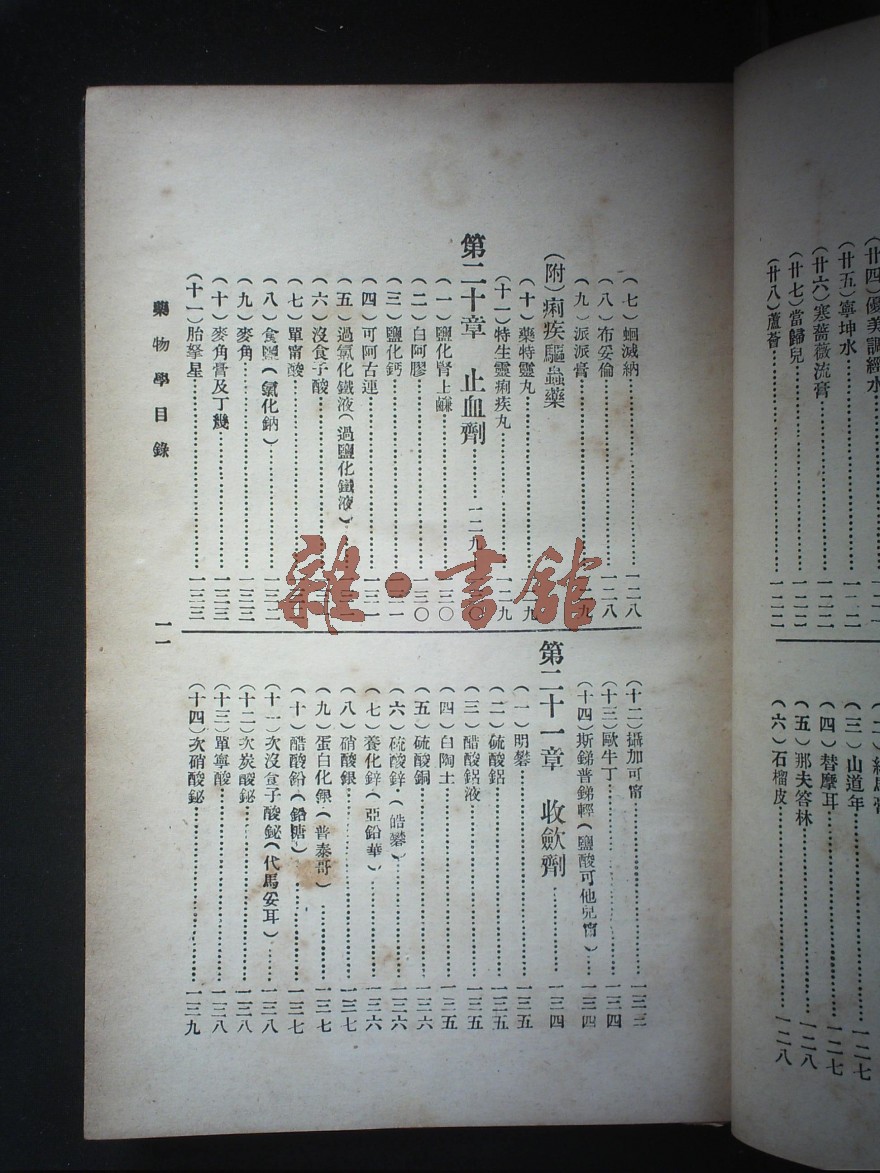 (廿四)優美調經水
(廿五)寧坤水……一二一
(廿六)塞薔薇流膏……一二二
(廿七)當歸兒……一二二
(廿八)蘆薈……一二二
(三)山道年……一二七
(四)替摩耳……一二七
(五)那夫答林……一二八
(六)石榴皮……一二八
(七)蛔滅納……一二八
(八)布妥倫……一二八
(九)派派膏
(附)痢疾驅蟲藥
(十)藥特靈丸
(十一)特生靈痢疾丸
第二十章 止血劑……一二九
(一)鹽化腎上鹼……一三〇
(二)白阿膠……一三〇
(三)鹽化鈣
(四)可阿古連……一三一
(五)過氯化鐵液(過鹽化鐵液)
(六)沒食子酸
(七)單甯酸
(八)食鹽(氯化鈉)……一三二
(九)麥角……一三三
(十)麥角膏及丁幾……一三三
(十一)胎孥星……一三三
藥物學目錄
一一
(十二)攝加可甯……一三三
(十三)歐牛丁……一三四
(十四)斯錦普錦輕(鹽酸可他兒甯)……一三四
第二十一章 收歛劑……一三四
(一)明礬……一三五
(二)硫酸鋁……一三五
(三)醋酸鋁液……一三五
(四)白陶土……一三五
(五)硫酸銅……一三六
(六)硫酸鋅(皓礬)……一三六
(七)養化鋅(亞鉛華)……一三六
(八)硝酸銀……一三七
(九)蛋白化銀(普泰哥)……一三七
(十)醋酸鉛(鉛糖)……一三七
(十一)次沒食子酸鉍(代馬妥耳)……一三八
(十二)次炭酸鉍……一三八
(十三)單寧酸……一三八
(十四)次硝酸鉍……一三九
雜·書館